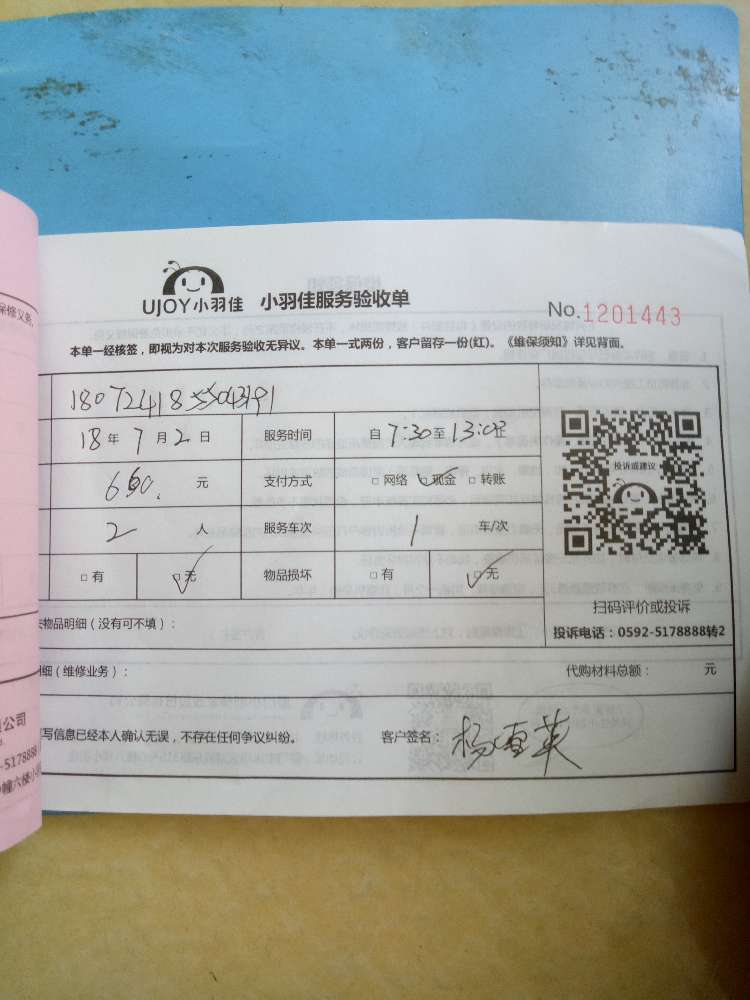 保修义务,
UJOY小羽佳 小羽佳服务验收单
No.1201443
本单一经核签，即视为对本次服务验收无异议。本单一式两份，客户留存一份(红)。《维保须知》详见背面。
1807241855043191
18 年 7 月 2 日 服务时间 自 7:30 至 13:00 止
650. 元 支付方式 □ 网络 □ 现金 □ 转账
2 人 服务车次 1 车/次
□ 有 □ 无 物品损坏 □ 有 □ 无
投诉或建议
扫码评价或投诉
投诉电话：0592-5178888转2
物品明细（没有可不填）：
细（维修业务）： 代购材料总额： 元
写信息已经本人确认无误，不存在任何争议纠纷。 客户签名：
公司
-5178888
幢六楼